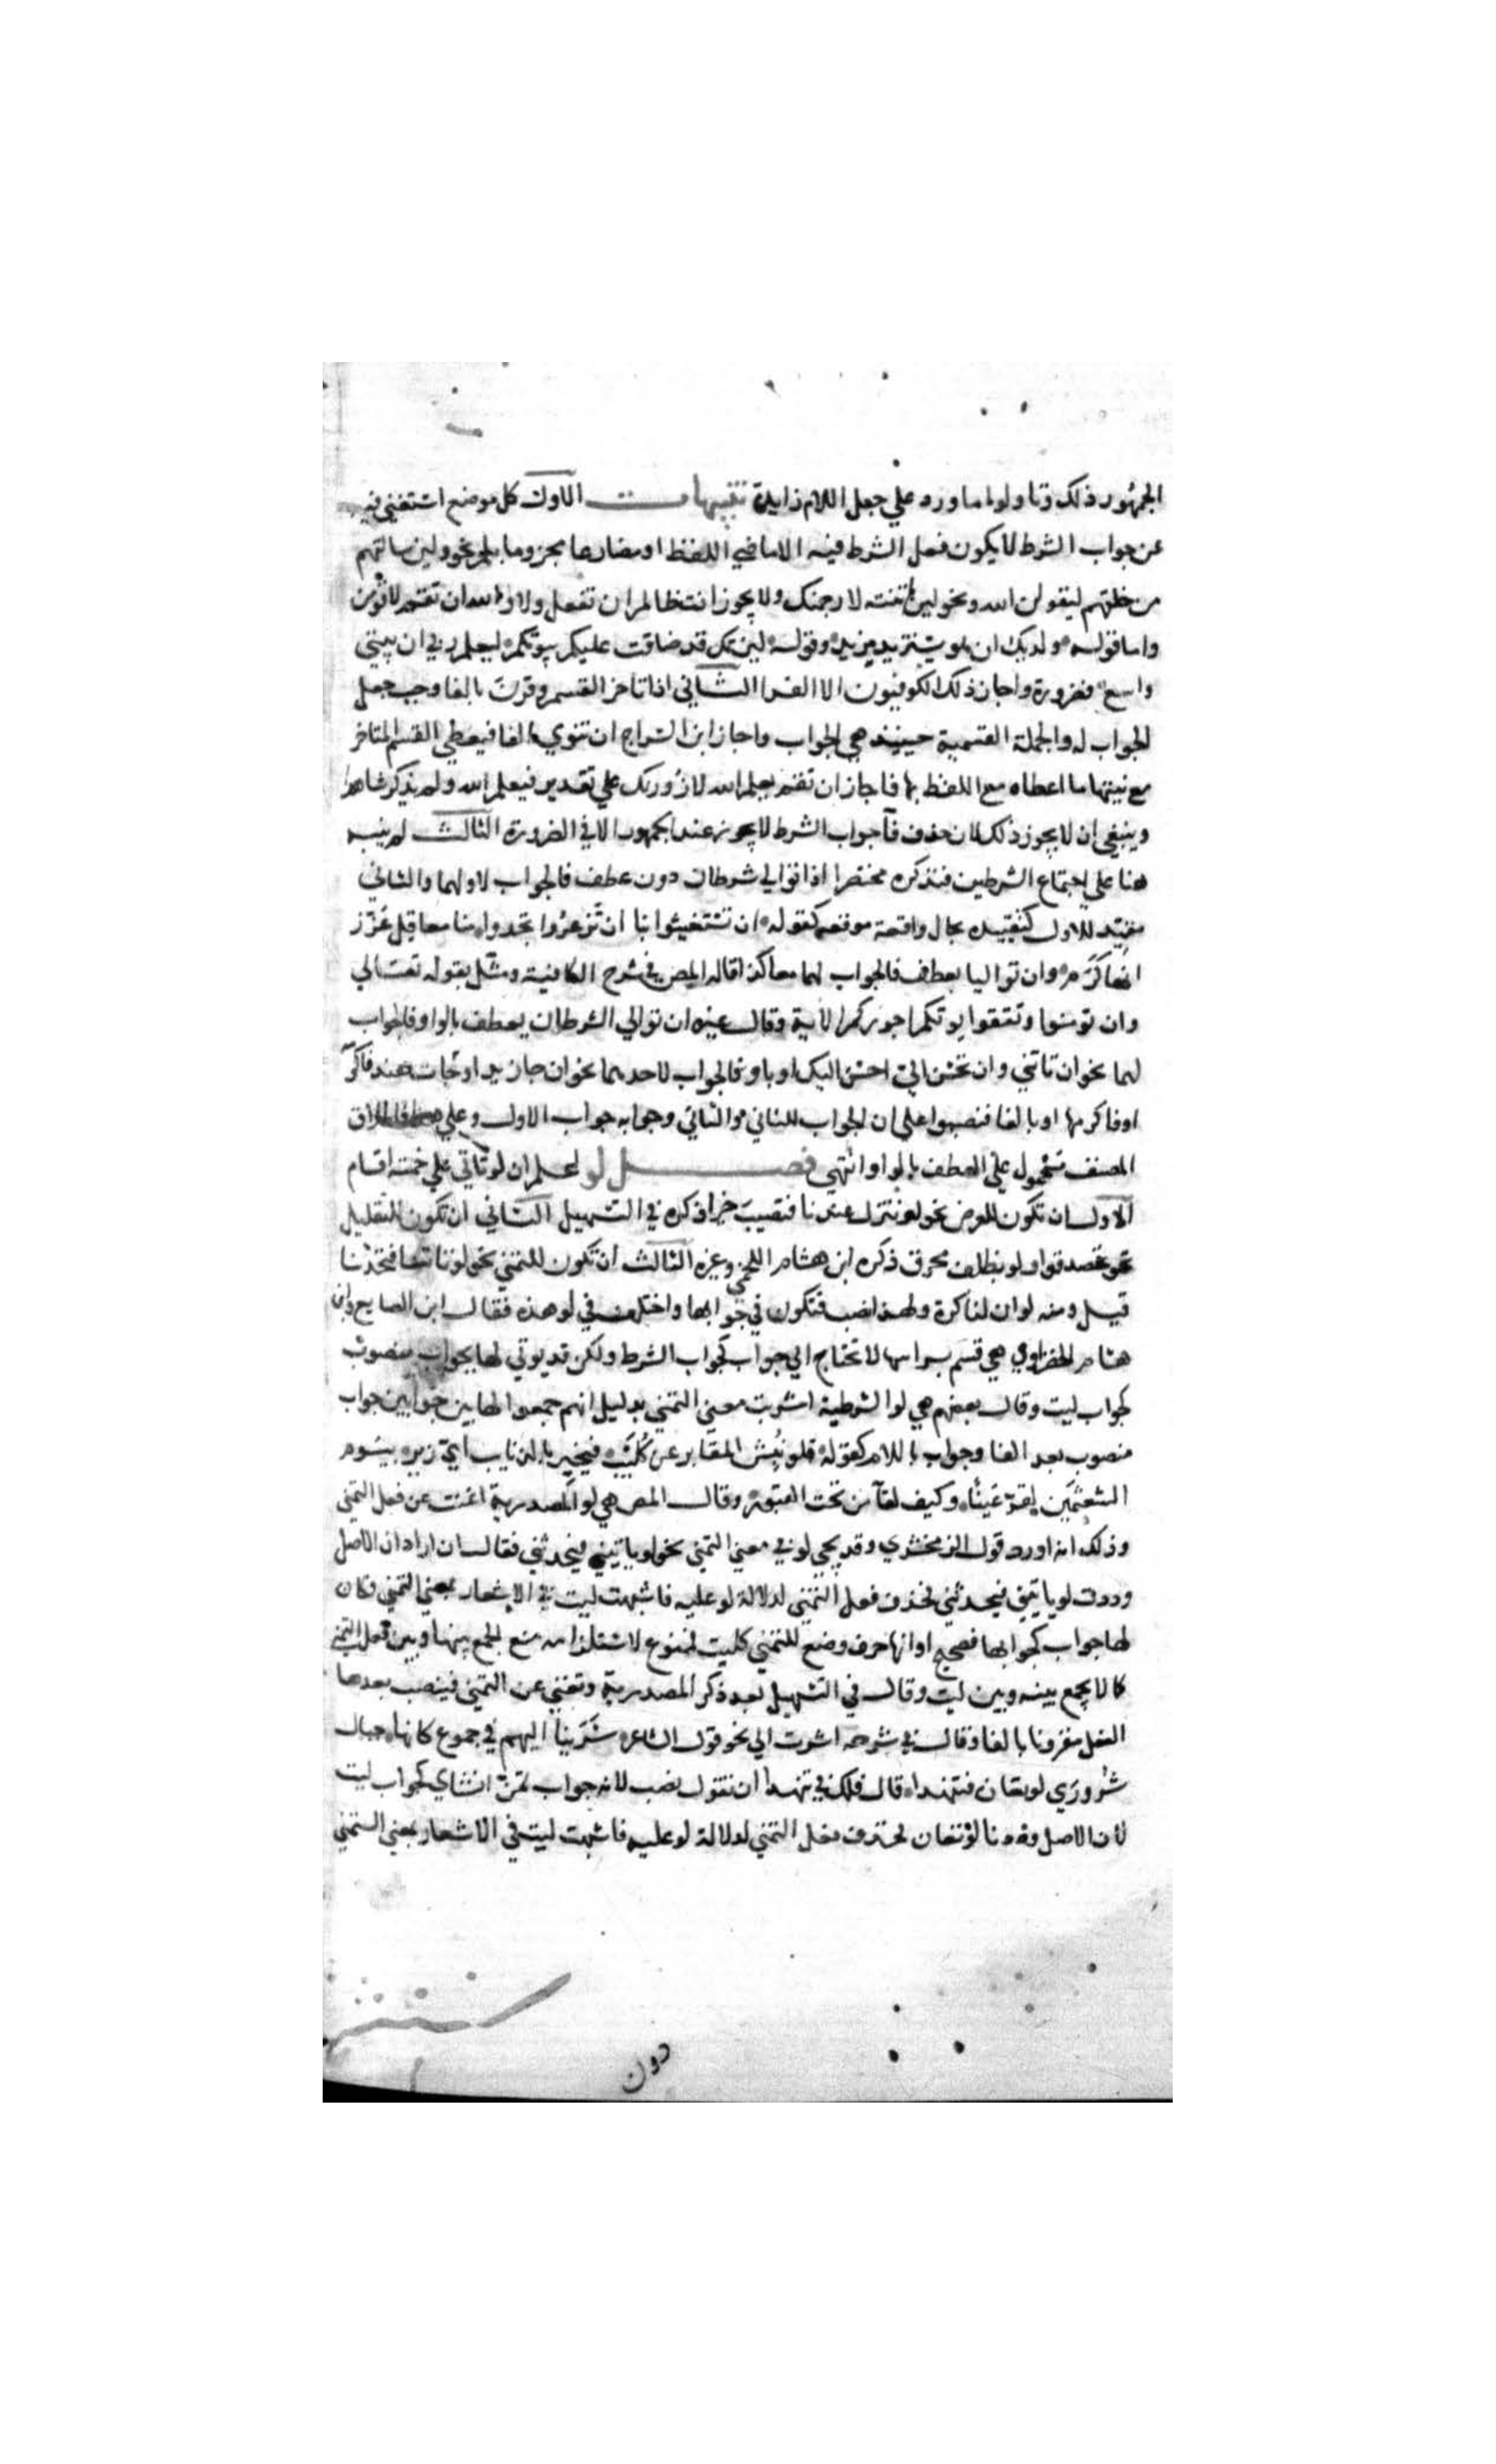 الجمهور ذلك وتاولوا ما ورد علي جعل اللام زايدة تنبيهات الاول كل موضع استغني فيه
عن جواب الشرط لا يكون فعل الشرط فيه الا ماضي اللفظ او مضارعا مجزوما بلم نحو ولين سالتهم
من خلقهم ليقولن الله ونحو لين لم تنته لارجمنك ولا يجوز انت ظالم ان تفعل ولا والله ان تقم لاقومن
واما قوله ولديك ان هو يستزيدك مزيد وقوله لين تك قد ضاقت عليكم بيوتكم ليعلم ربي ان بيتي
واسع فضرورة واجاز ذلك الكوفيون الا الفرا الثاني اذا تاخر القسم وقرن بالفا وجب جعل
الجواب له والجملة القسمية حينيذ هي الجواب واجاز ابن السراج ان تنوي الفا فيعطي القسم المتاخر
مع نيتها ما اعطاه مع اللفظ بها فاجاز ان تقم يعلم الله لازورنك علي تقدير فيعلم الله ولم يذكر شاهدا
وينبغي ان لا يجوز ذلك لان حذف فآ جواب الشرط لا يجوز عند الجمهور الا في الضرورة الثالث لم ينبه
هنا علي اجتماع الشرطين فنذكره مختصرا اذا توالي شرطان دون عطف فالجواب لاولهما والثاني
مقيد للاول كتقييده بحال واقعة موقعه كقوله ان تستغيثوا بنا ان تذعروا تجدوا منا معاقل عزز
انها كرم وان تواليا بعطف فالجواب لهما معا كذا قاله المص في شرح الكافية ومثل بقوله تعالي
وان تومنوا وتتقوا يوتكم اجوركم الاية وقال غيره ان توالي الشرطان بعطف بالواو فالجواب
لهما نحو ان تاتني وان تحسن الي احسن اليك او باو فالجواب لاحدهما نحو ان جا زيد او جات هند فاكرمه
او فاكرمها او بالفا فنصوا علي ان الجواب للثاني والثاني وجوابه جواب الاول وعلي هذا فاطلاق
المصنف محمول علي العطف بالواو انتهي فصل لو اعلم ان لو تاتي علي خمسة اقسام
الاول ان تكون للعرض نحو لو تنزل عندنا فتصيب خيرا ذكره في التسهيل الثاني ان تكون للتقليل
نحو تصدقوا ولو بظلف محرق ذكره ابن هشام اللخمي وغيره الثالث ان تكون للتمني نحو لو تاتينا فتحدثنا
قيل ومنه لو ان لنا كرة ولهذا نصب فنكون في جوابها واختلف في لو هذه فقال ابن الصايع وابن
هشام الخضراوي هي قسم براسها لا تحتاج الي جواب كجواب الشرط ولكن قد يوتي لها بجواب منصوب
كجواب ليت وقال بعضهم هي لو الشرطية اشربت معني التمني بدليل انهم جمعوا لها بين جوابين جواب
منصوب بعد الفا وجواب باللام كقوله فلو نبش المقابر عن كليب فيخبر بالذنايب اي زير بيوم
الشعثمين لقر عينا وكيف لقآ من تحت القبور وقال المص هي لو المصدرية اغنت عن فعل التمني
وذلك انه اورد قول الزمخشري وقد تجي لو في معني التمني نحو لو ياتيني فيحدثني فقال ان اراد ان الاصل
وددت لو ياتيني فيحدثني فحذف فعل التمني لدلالة لو عليه فاشبهت ليت في الاشعار بمعني التمني فكان
لها جواب كجوابها فصحيح او انها حرف وضع للتمني كليت فممنوع لاستلزامه منع الجمع بينها وبين فعل التمني
كما لا يجمع بينه وبين ليت وقال في التسهيل بعد ذكر المصدرية وتغني عن التمني فينصب بعدها
الفعل مقرونا بالفا وقال في شرحه اشرت الي نحو قول الشاعر سرينا اليهم في جموع كانها جبال
شروري لو نعان فننهدا قال فلك في ننهدا ان تقول نصب لانه جواب تمن انشاي كجواب ليت
لان الاصل وددنا لو نعان فحذف فعل التمني لدلالة لو عليه فاشبهت ليت في الاشعار بمعني التمني
دون